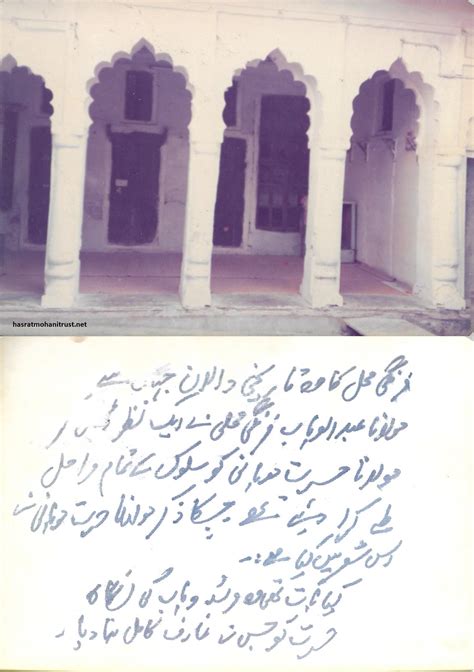 hasratmohanitrust.net
فرنگی محل کا وہ تاریخی دالان جہاں سے
مولانا عبدالوہاب فرنگی محلی نے ایک نظر میں
مولانا حسرت موہانی کو سلوک کے تمام مراحل
طے کرا دیئے تھے جسکا ذکر مولانا حسرت موہانی نے
اس شعر میں کیا ہے :-
کیا تھی مرشد وہاب کی نگاہ
حسرت کو جس نے عارف کامل بنا دیا